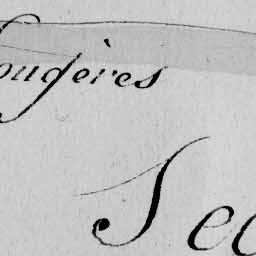 ougères
Sec